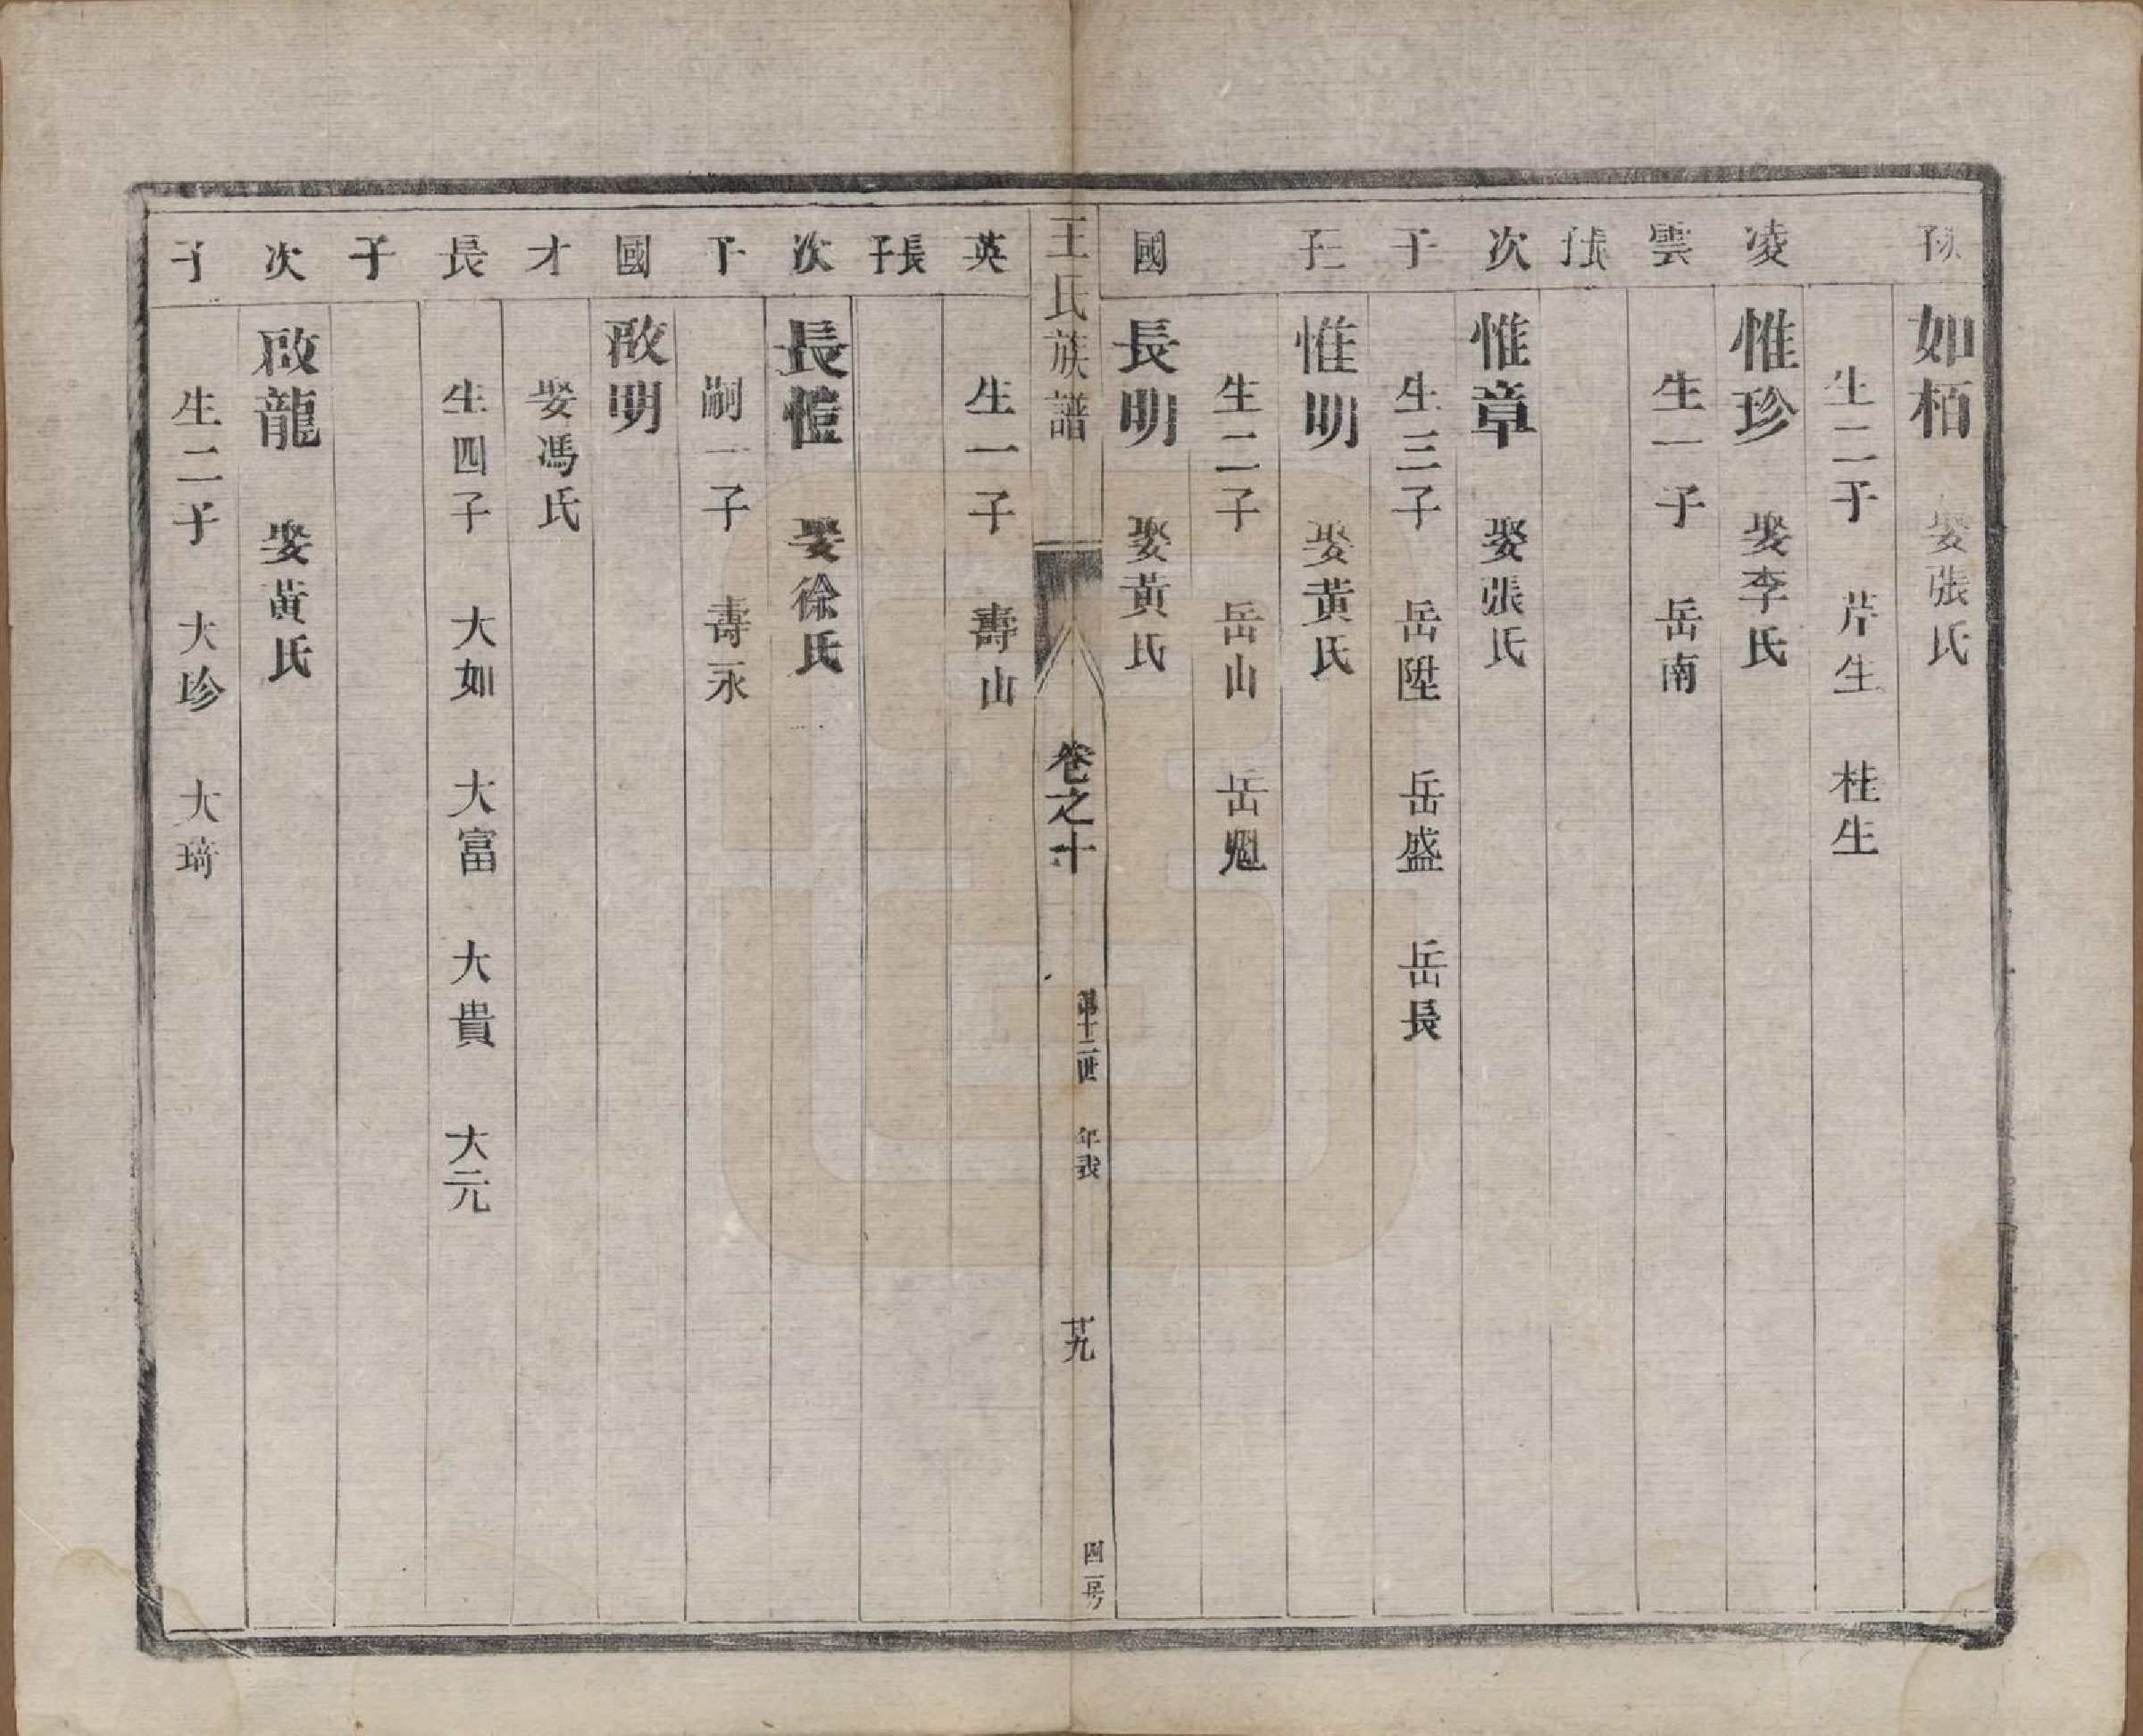 如栢 娶張氏
生二子 芹生 桂生
凌 惟珍 娶李氏
雲 生一子 岳南
長子
次 惟章 娶張氏
子 生三子 岳陞 岳盛 岳長
三子 惟明 娶黃氏
生二子 岳山 岳魁
國 長明 娶黃氏
王氏族譜 卷之十 第十二世 年表 廿九 四房
英 生一子 壽山
長子
次 長愷 娶徐氏
子 嗣一子 壽永
國 啟明
才 娶馮氏
長 生四子 大如 大富 大貴 大元
子
次 啟龍 娶黃氏
子 生二子 大珍 大琦